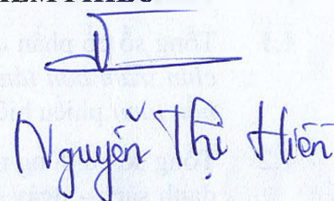 Nguyễn Thị Hiền